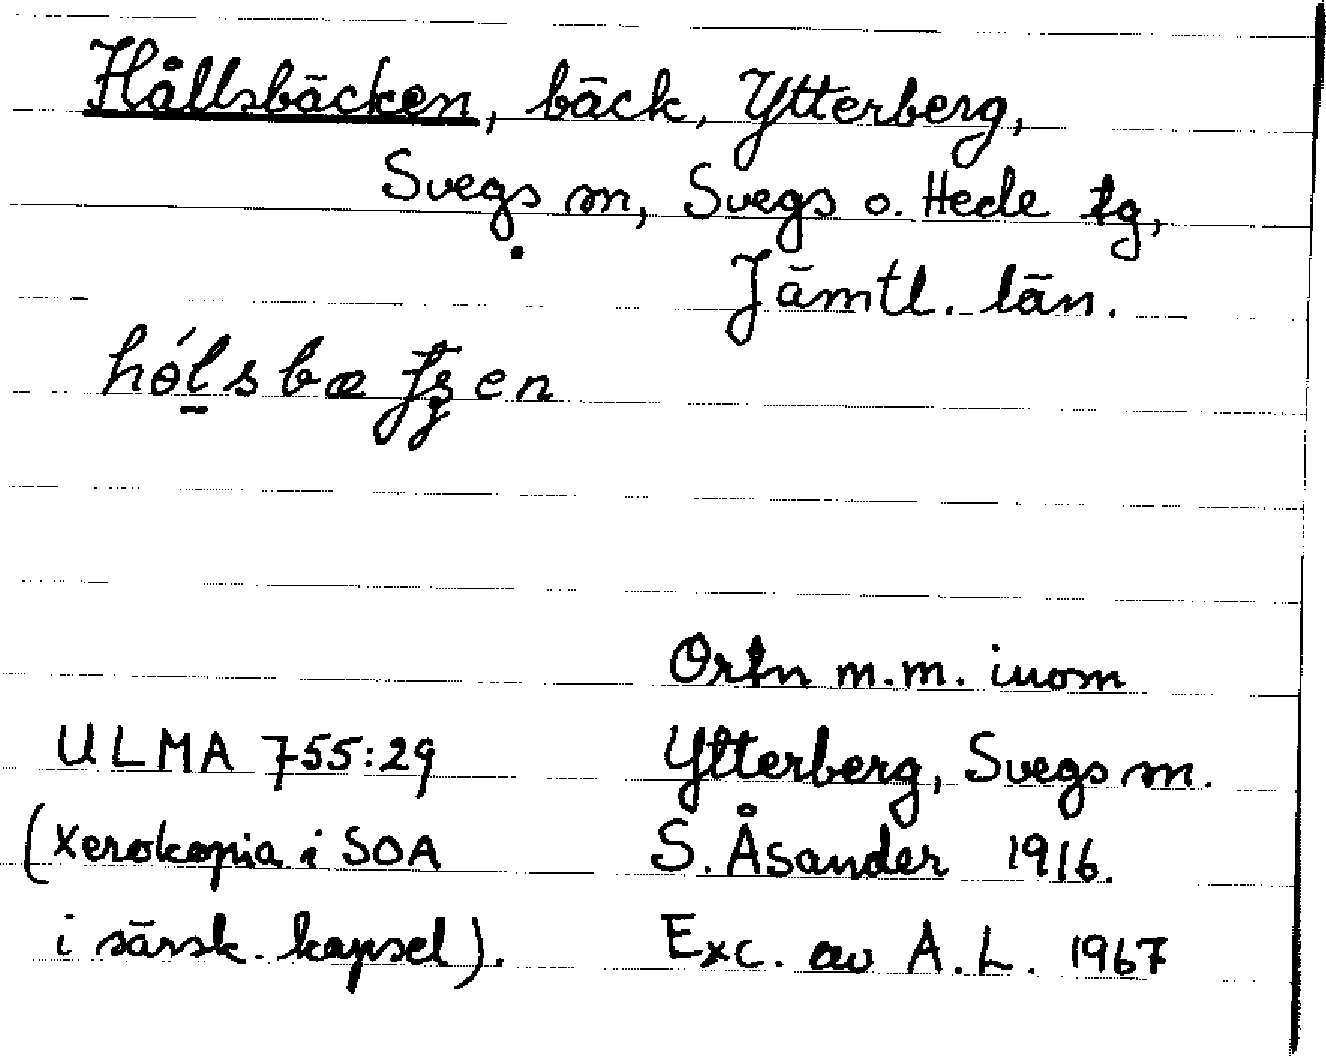 Hållsbäcken, bäck, Ytterberg,
Svegs sn, Svegs o. Hede tg,
Jämtl. län.
Ortn m.m. inom
ULMA 755:29 Ytterberg, Svegs sn.
(Xerokopia i SOA S. Åsander 1916.
i särsk. kapsel). Exc. av A.L. 1967